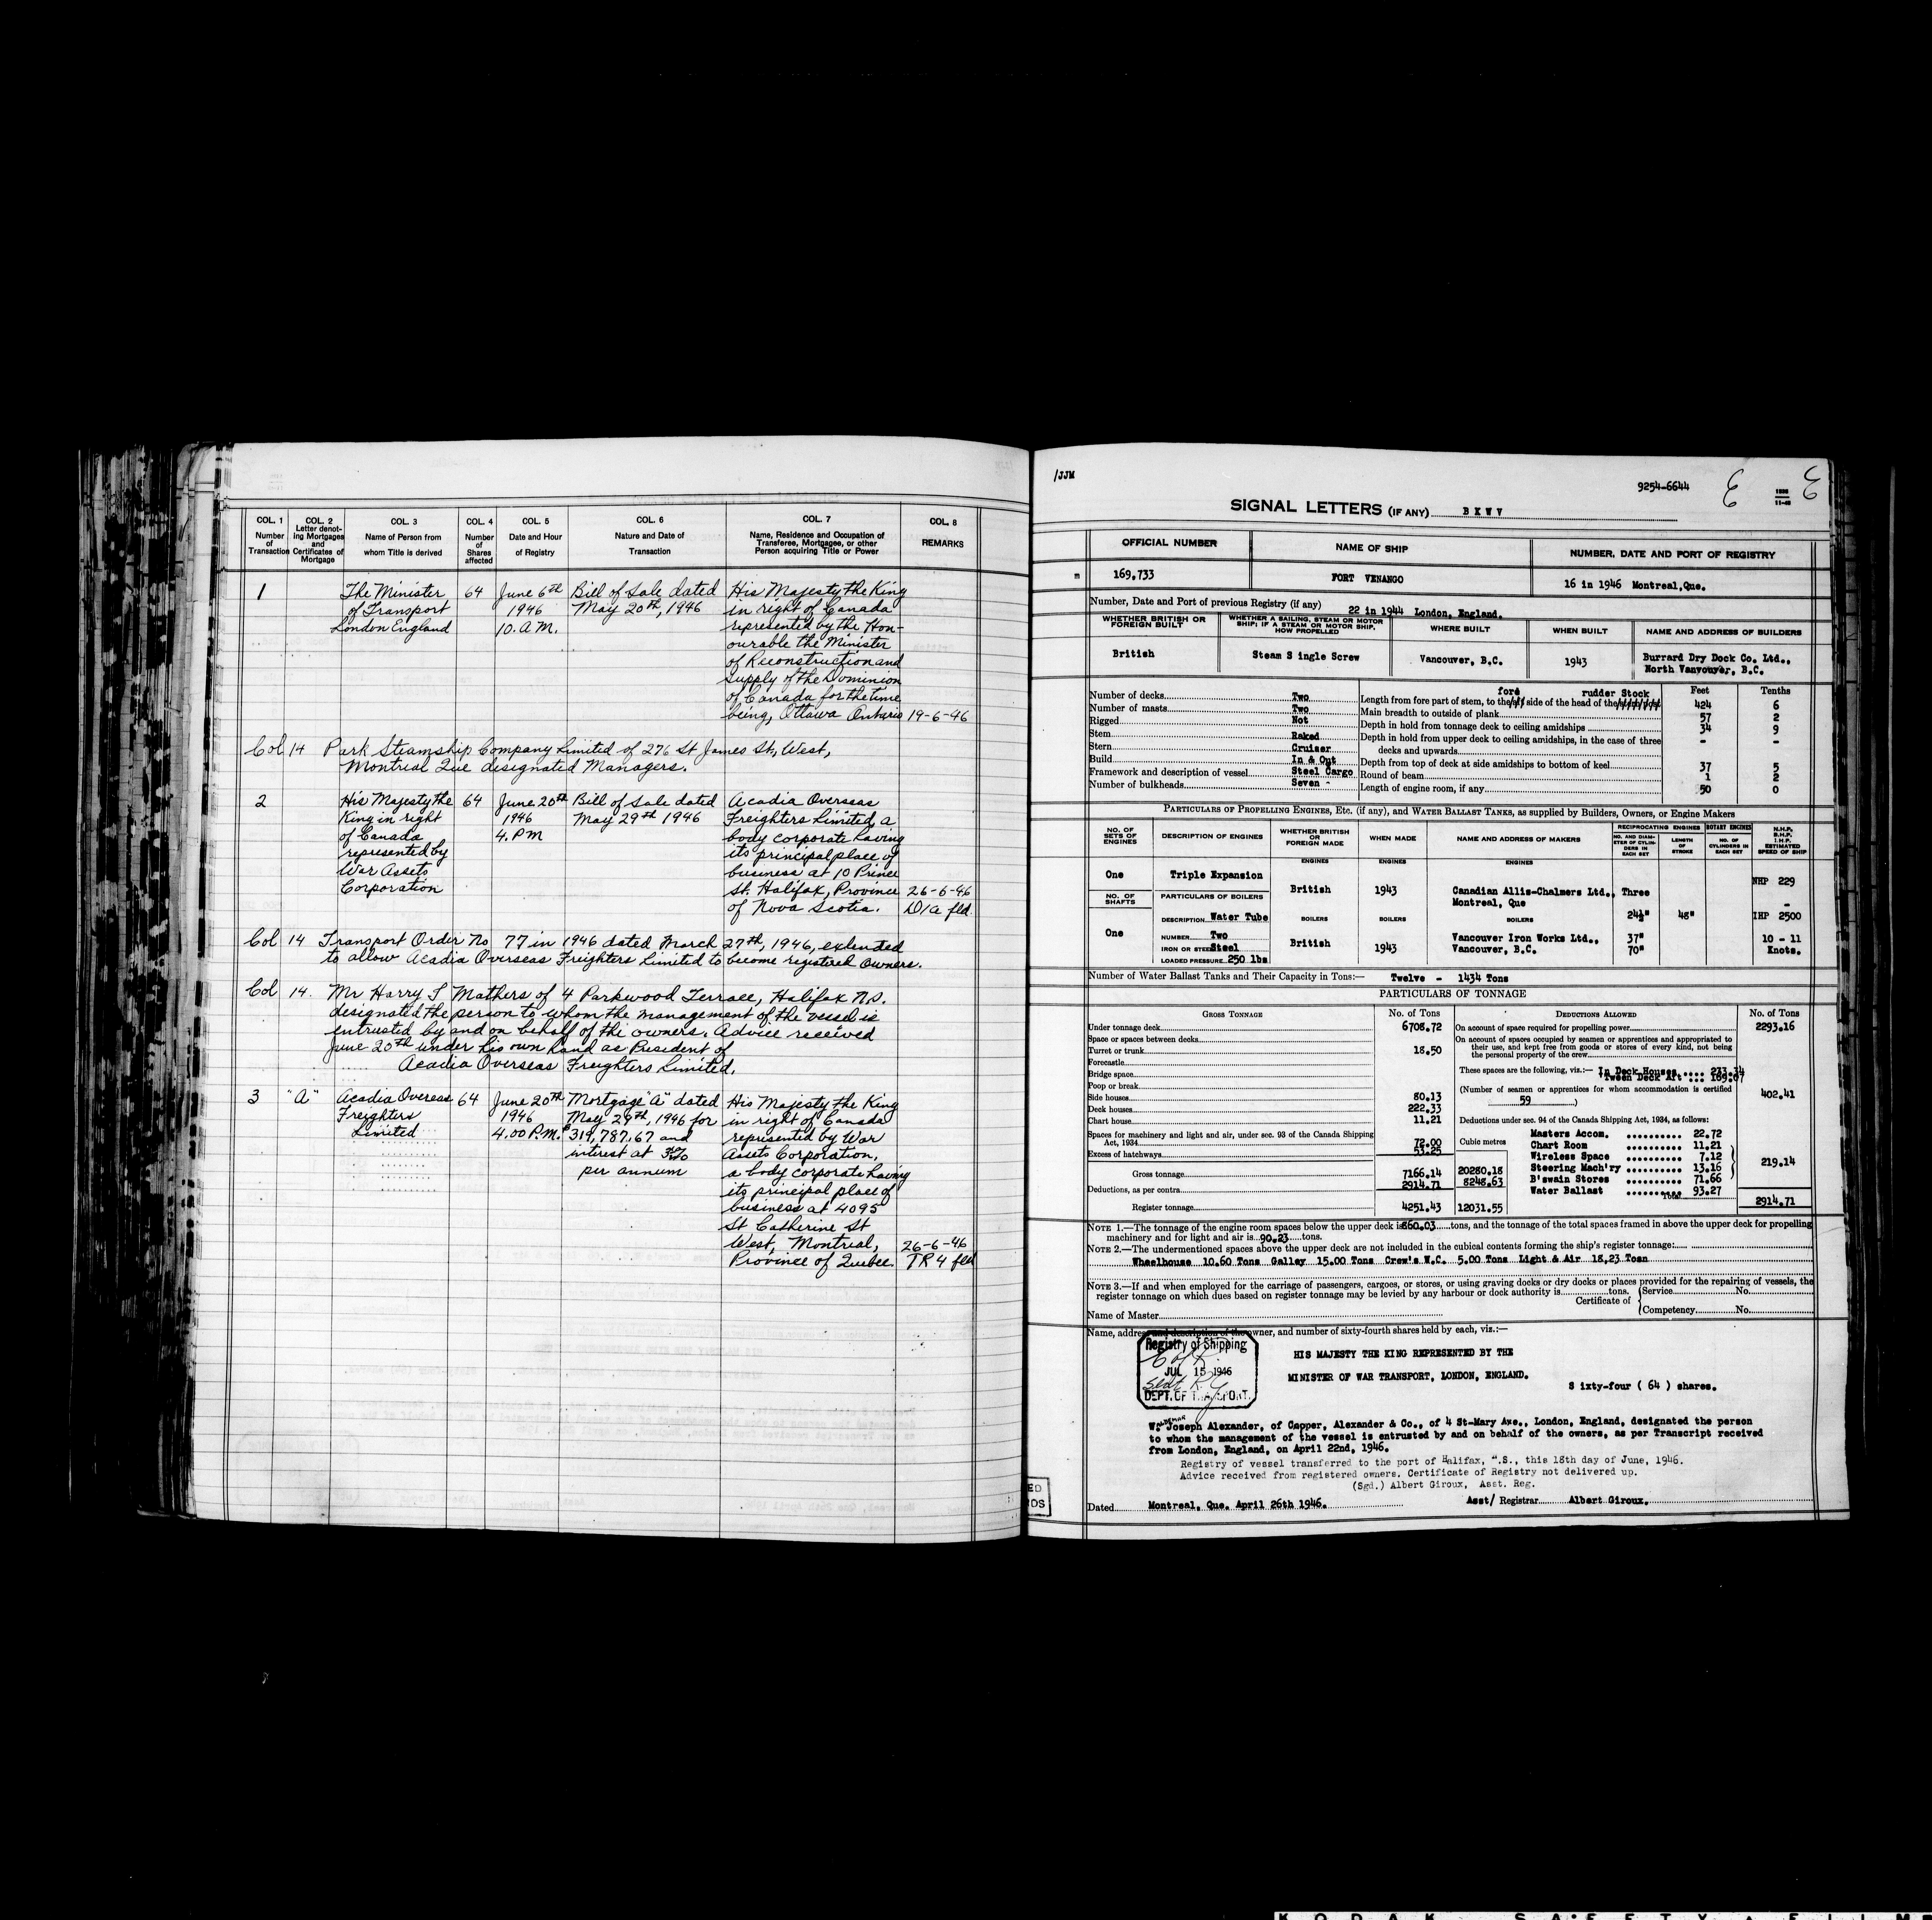 COL. 1 COL. 2 COL. 3 COL. 4 COL. 5 COL. 6 COL. 7 COL. 8
Number of Transaction
Letter denoting Mortgages and Certificates of Mortgage
Name of Person from whom Title is derived
Number of Shares affected
Date and Hour of Registry
Nature and Date of Transaction
Name, Residence and Occupation of Transferee, Mortgagee, or other Person acquiring Title or Power
REMARKS
1 The Minister 64 June 6th Bill of Sale dated His Majesty the King
of Transport 1946 May 20th, 1946 in right of Canada
London England 10. A.M. represented by the Hon-
ourable the Minister
of Reconstruction and
Supply of the Dominion
of Canada for the time
being, Ottawa Ontario 19-6-46
Col 14 Park Steamship Company Limited of 276 St James St, West,
Montreal Que designated Managers.
2 His Majesty the 64 June 20th Bill of Sale dated Acadia Overseas
King in right 1946 May 29th 1946 Freighters Limited a
of Canada 4. PM body corporate having
represented by its principal place of
War Assets business at 10 Prince
Corporation St. Halifax, Province 26-6-46
of Nova Scotia. D/a fld
Col 14 Transport Order No 77 in 1946 dated March 27th, 1946, extended
to allow Acadia Overseas Freighters Limited to become registered owners.
Col 14. Mr Harry I Mathers of 4 Parkwood Terrace, Halifax N.S.
designated the person to whom the management of the vessel is
entrusted by and on behalf of the owners. Advice received
June 20th under his own hand as President of
Acadia Overseas Freighters Limited.
3 "A" Acadia Overseas 64 June 20th Mortgage "A" dated His Majesty the King
Freighters 1946 May 29th, 1946 for in right of Canada
Limited 4.00 P.M. $319,787.67 and represented by War
interest at Assets Corporation,
per annum a body corporate having
its principal place of
business at 4095
St Catherine St
West, Montreal, 26-6-46
Province of Quebec. TR 4 fld
/JJM
9254-6644
SIGNAL LETTERS (IF ANY) B X W V
OFFICIAL NUMBER NAME OF SHIP NUMBER, DATE AND PORT OF REGISTRY
169,733 FORT VENANGO 16 in 1946 Montreal,Que.
Number, Date and Port of previous Registry (if any) 22 in 1944 London, England.
WHETHER BRITISH OR FOREIGN BUILT
WHETHER A SAILING, STEAM OR MOTOR SHIP; IF A STEAM OR MOTOR SHIP, HOW PROPELLED
WHERE BUILT WHEN BUILT NAME AND ADDRESS OF BUILDERS
British Steam S ingle Screw Vancouver, B.C. 1943 Burrard Dry Dock Co. Ltd.,
North Vanvouver, B.C.
Number of decks Two
Number of masts Two
Rigged Not
Stem Raked
Stern Cruiser
Build In & Out
Framework and description of vessel Steel Cargo
Number of bulkheads Seven -
Feet Tenths
fore rudder Stock
Length from fore part of stem, to the side of the head of the 424 6
Main breadth to outside of plank 57 2
Depth in hold from tonnage deck to ceiling amidships 34 9
Depth in hold from upper deck to ceiling amidships, in the case of three
decks and upwards - -
Depth from top of deck at side amidships to bottom of keel 37 5
Round of beam 1 2
Length of engine room, if any 50 0
PARTICULARS OF PROPELLING ENGINES, ETC. (if any), and WATER BALLAST TANKS, as supplied by Builders, Owners, or Engine Makers
NO. OF SETS OF ENGINES
DESCRIPTION OF ENGINES
WHETHER BRITISH OR FOREIGN MADE
WHEN MADE
NAME AND ADDRESS OF MAKERS
RECIPROCATING ENGINES
ROTARY ENGINES
NO. AND DIAMETER OF CYLINDERS IN EACH SET
LENGTH OF STROKE
NO. OF CYLINDERS IN EACH SET
N.H.P. B.H.P. I.H.P. ESTIMATED SPEED OF SHIP
ENGINES ENGINES ENGINES
One Triple Expansion British 1943 Canadian Allis-Chalmers Ltd., Three NHP 229
Montreal, Que
NO. OF SHAFTS PARTICULARS OF BOILERS
DESCRIPTION Water Tube BOILERS BOILERS BOILERS 24½" 48" IHP 2500
One NUMBER Two British 1943 Vancouver Iron Works Ltd., 37" 10 - 11
IRON OR STEEL Steel Vancouver, B.C. 70" Knots.
LOADED PRESSURE 250 lbs
Number of Water Ballast Tanks and Their Capacity in Tons:— Twelve - 1434 Tons
PARTICULARS OF TONNAGE
GROSS TONNAGE No. of Tons DEDUCTIONS ALLOWED No. of Tons
Under tonnage deck 6708.72
Space or spaces between decks
Turret or trunk 18.50
Forecastle
Bridge space
Poop or break
Side houses 80.13
Deck houses 222.33
Chart house 11.21
Spaces for machinery and light and air, under sec. 93 of the Canada Shipping
Act, 1934 72.00
Excess of hatchways 53.25
Cubic metres
Gross tonnage 7166.14 20280.18
Deductions, as per contra 2914.71 8248.63
Register tonnage 4251.43 12031.55
On account of space required for propelling power 2293.16
On account of spaces occupied by seamen or apprentices and appropriated to
their use, and kept free from goods or stores of every kind, not being
the personal property of the crew
These spaces are the following, viz.:— In Deck Houses .... 233.34
Tween Deck Aft ... 169.07
(Number of seamen or apprentices for whom accommodation is certified
59) 402.41
Deductions under sec. 94 of the Canada Shipping Act, 1934, as follows:
Masters Accom. 22.72
Chart Room 11.21
Wireless Space 7.12
Steering Mach'ry 13.16 219.14
B'swain Stores 71.66
Water Ballast 93.27
Total 2914.71
NOTE 1.—The tonnage of the engine room spaces below the upper deck is 860.03 tons, and the tonnage of the total spaces framed in above the upper deck for propelling
machinery and for light and air is 90.23 tons.
NOTE 2.—The undermentioned spaces above the upper deck are not included in the cubical contents forming the ship's register tonnage:
Wheelhouse 10.60 Tons Galley 15.00 Tons Crew's W.C. 5.00 Tons Light & Air 18.23 Tosn
NOTE 3.—If and when employed for the carriage of passengers, cargoes, or stores, or using graving docks or dry docks or places provided for the repairing of vessels, the
register tonnage on which dues based on register tonnage may be levied by any harbour or dock authority is tons.
Certificate of Service No.
Competency No.
Name of Master
Name, address and description of the owner, and number of sixty-fourth shares held by each, viz.:—
Registry of Shipping
JUL 15 1946
DEPT. OF TRANSPORT.
HIS MAJESTY THE KING REPRESENTED BY THE
MINISTER OF WAR TRANSPORT, LONDON, ENGLAND.
S ixty-four ( 64 ) shares.
W. Joseph Alexander, of Capper, Alexander & Co., of 4 St-Mary Axe., London, England, designated the person
to whom the management of the vessel is entrusted by and on behalf of the owners, as per Transcript received
from London, England, on April 22nd, 1946.
Registry of vessel transferred to the port of Halifax, ".S., this 18th day of June, 1946.
Advice received from registered owners. Certificate of Registry not delivered up.
(Sgd.) Albert Giroux, Asst. Reg.
Dated Montreal, Que. April 26th 1946. Asst/ Registrar Albert Giroux.
KODAK SAFETY FILM